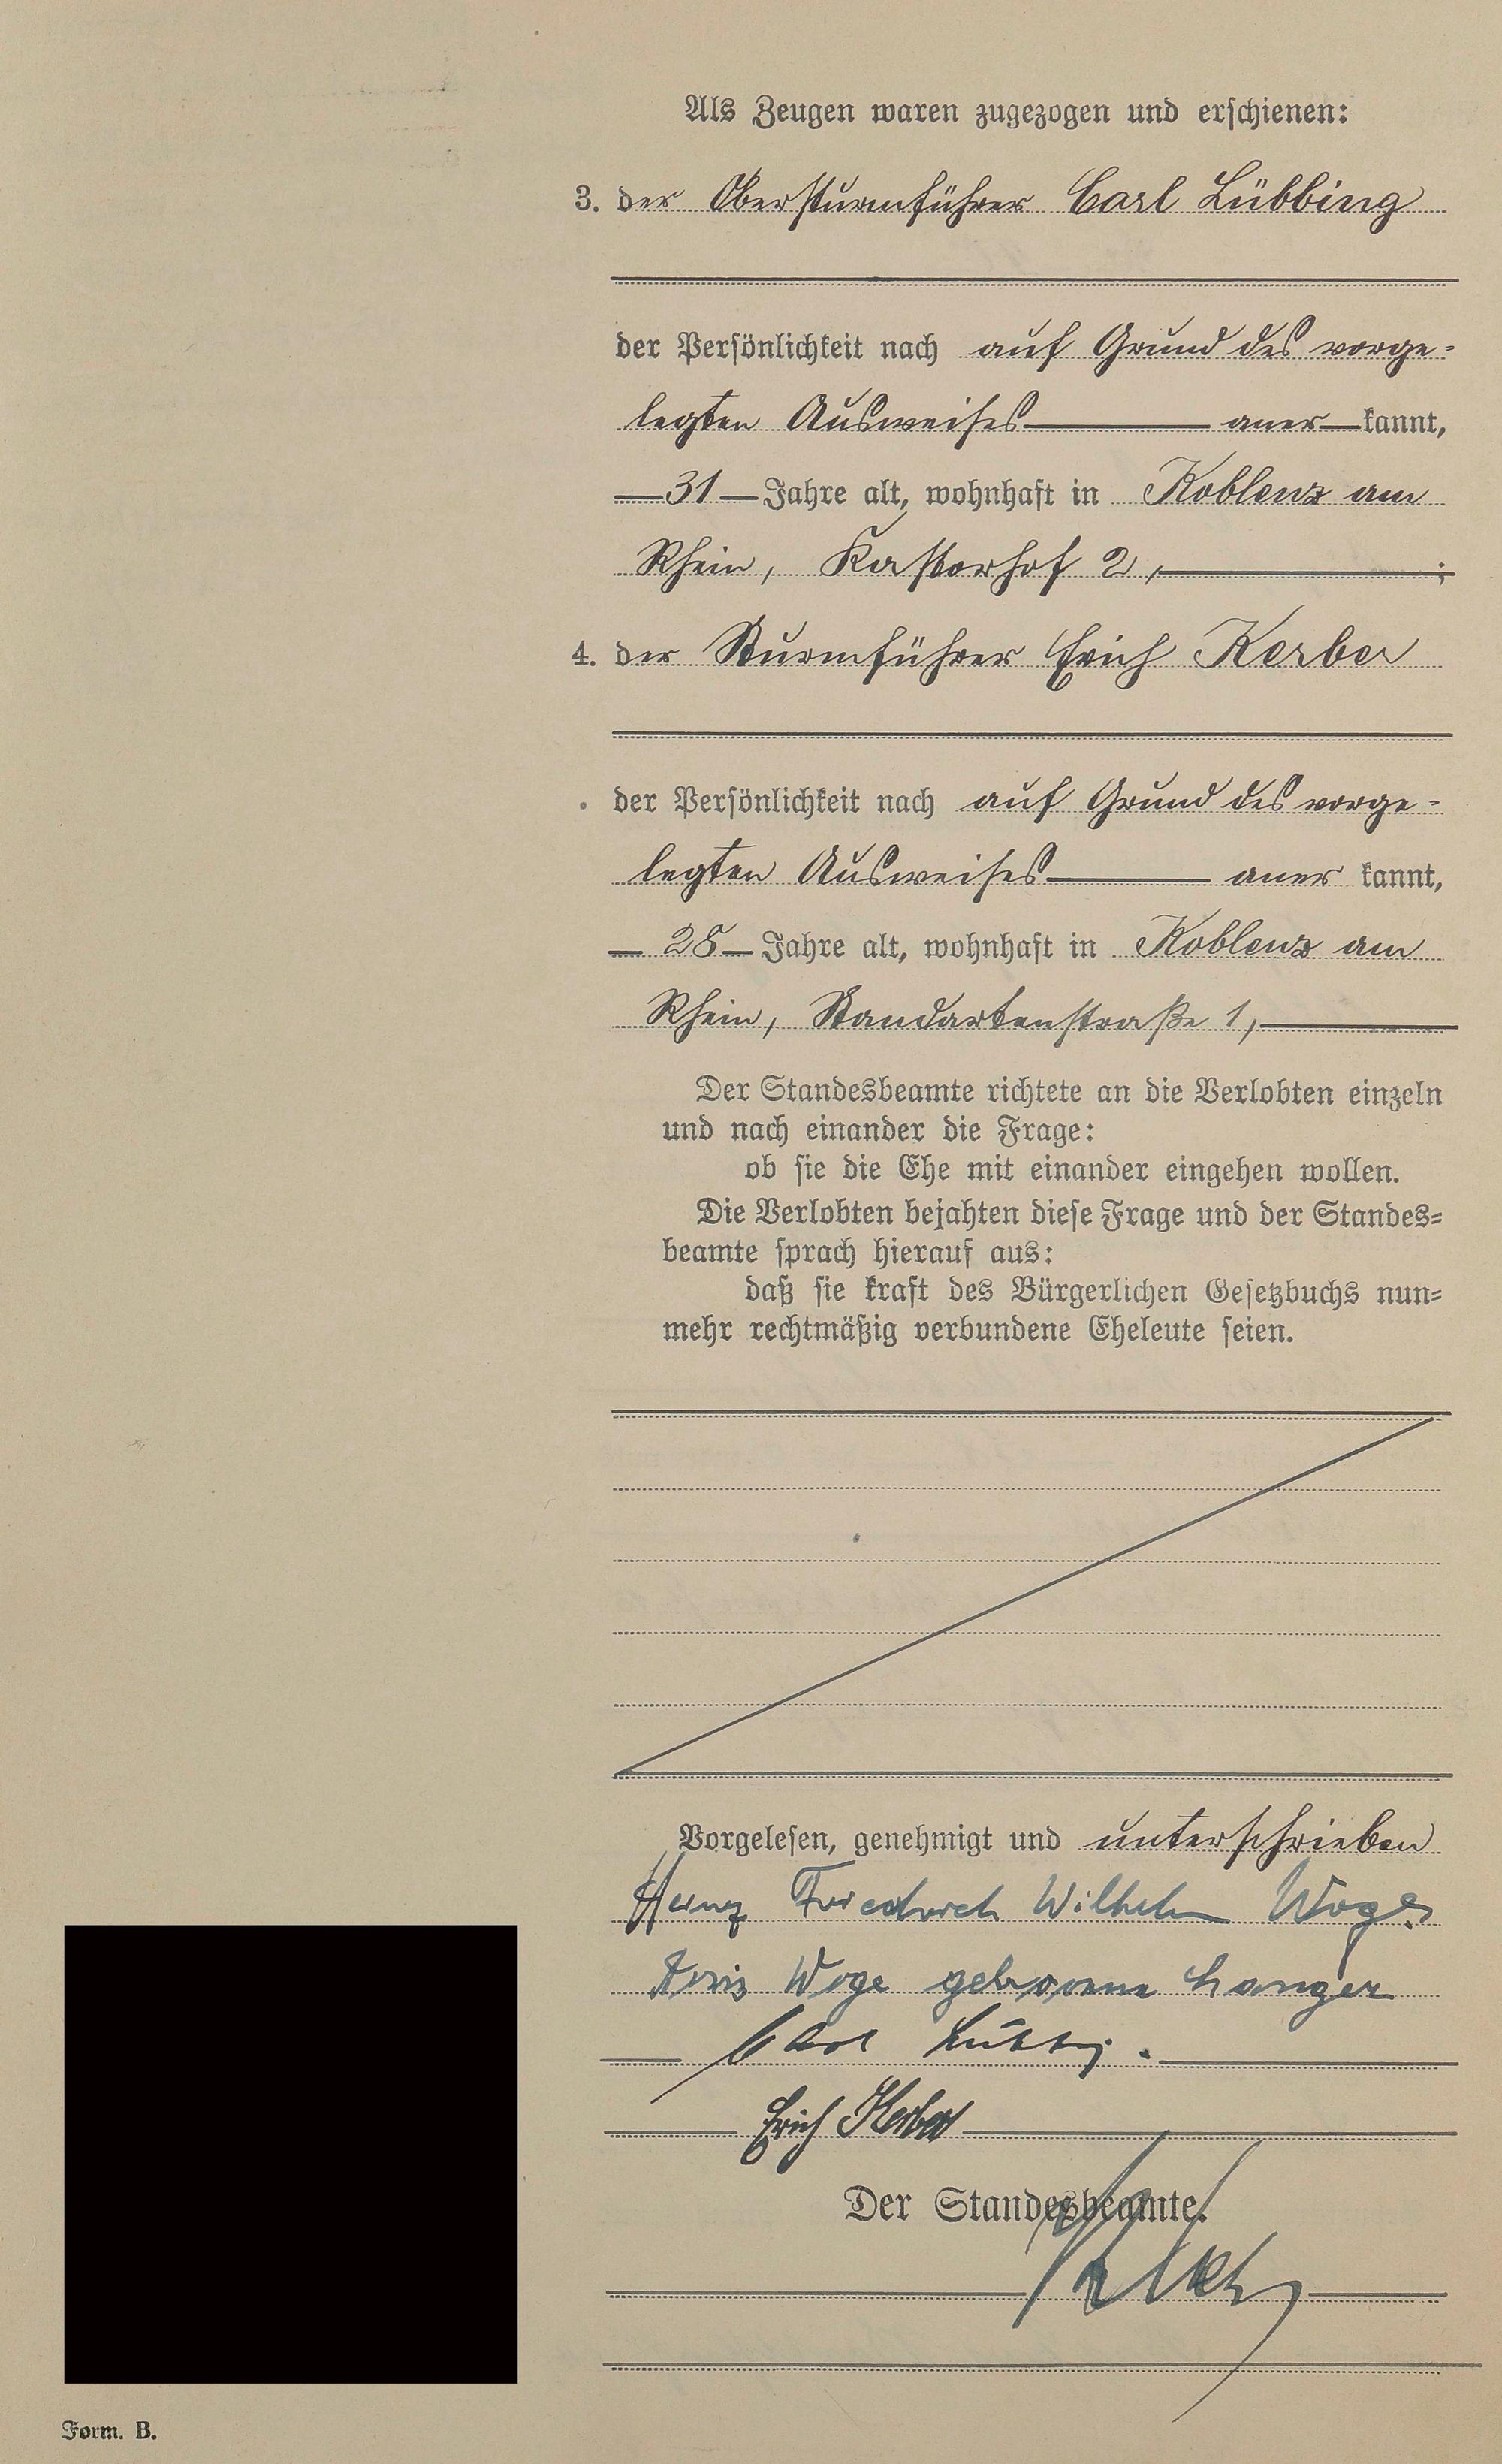 Als Zeugen waren zugezogen und erschienen:
3. der Obersturmführer Carl Lübbing
der Persönlichkeit nach auf Grund des vorge-
legten Ausweises aner kannt,
31 Jahre alt, wohnhaft in Koblenz am
Rhein, Kastorhof 2, ;
4. der Sturmführer Erich Kerber
der Persönlichkeit nach auf Grund des vorge-
legten Ausweises aner kannt,
28 Jahre alt, wohnhaft in Koblenz am
Rhein, Standartenstraße 1,
Der Standesbeamte richtete an die Verlobten einzeln
und nach einander die Frage:
ob sie die Ehe mit einander eingehen wollen.
Die Verlobten bejahten diese Frage und der Standes-
beamte sprach hierauf aus:
daß sie kraft des Bürgerlichen Gesetzbuchs nun-
mehr rechtmäßig verbundene Eheleute seien.
Vorgelesen, genehmigt und unterschrieben
Heinz Friedrich Wilhelm Woge.
Woge geborene Langer
Carl Lübbing.
Erich Kerber
Der Standesbeamte.
Form. B.